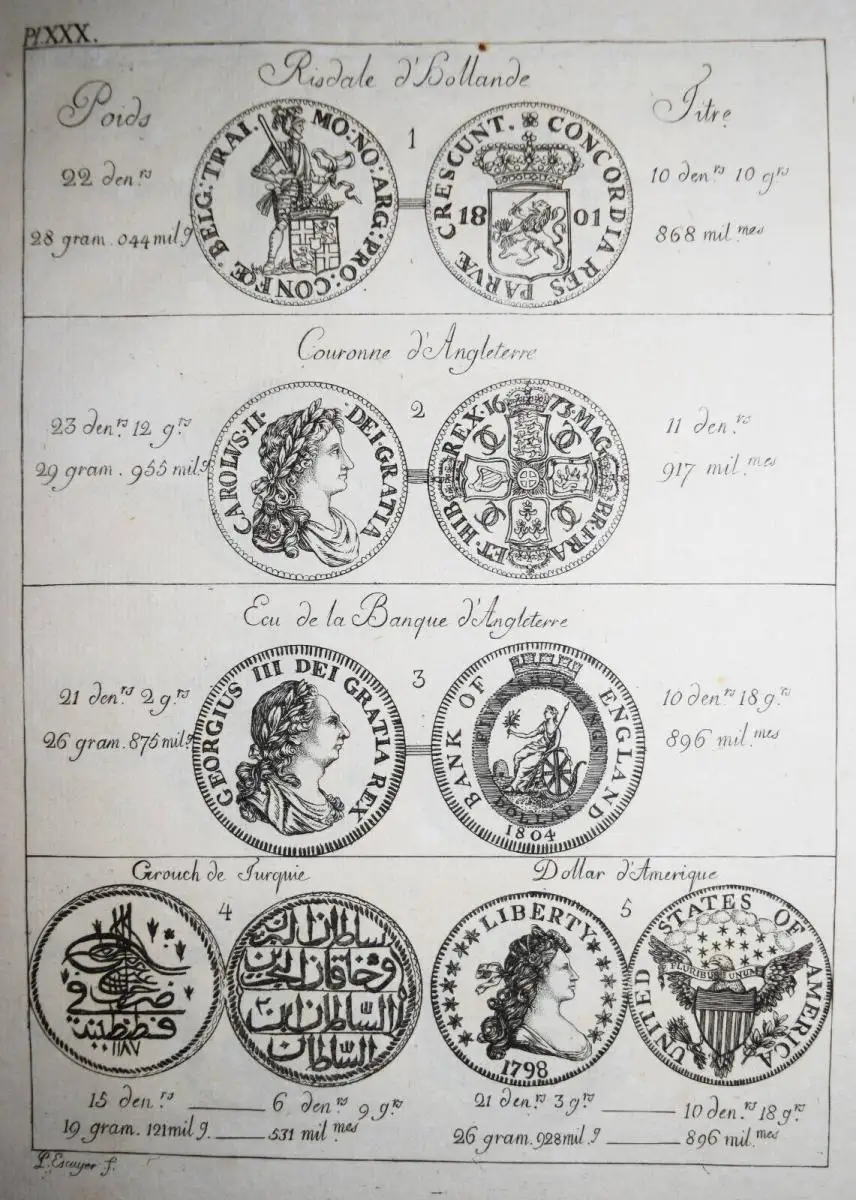 Pl. XXX.
Risdale d'Hollande
Poids
Titre
1
22 den.rs
28 gram. 044 mil.g
10 den.rs 10 grs
868 mil.mes
MO: NO: ARG: PRO: CONFŒ BELG: TRAI.
CONCORDIA RES PARVÆ CRESCUNT.
18 01
Couronne d'Angleterre
2
23 den.rs 12 g.rs
29 gram. 955 mil.g
11 den.rs
917 mil.mes
CAROLVS·II· DEI·GRATIA
16 73·MAG BR·FRA ET·HIB REX·
Ecu de la Banque d'Angleterre
3
21 den.rs 2 g.rs
26 gram. 875 mil.g
10 den.rs 18 g.rs
896 mil.mes
GEORGIUS III DEI GRATIA REX
BANK OF ENGLAND
FIVE SHILLINGS
DOLLAR
1804
Grouch de Turquie
Dollar d'Amerique
4
5
ضرب في
قسطنطينية
١١٨٧
السلطان البرين
وخاقان البحرين
السلطان ابن
السلطان
LIBERTY
1798
UNITED STATES OF AMERICA
PLURIBUS UNUM
15 den.rs 6 den.rs 9 grs
19 gram. 121 mil g. 531 mil mes
21 den.rs 3 g.rs 10 den.rs 18 g.rs
26 gram. 928 mil.g 896 mil.mes
L. Escuyer f.